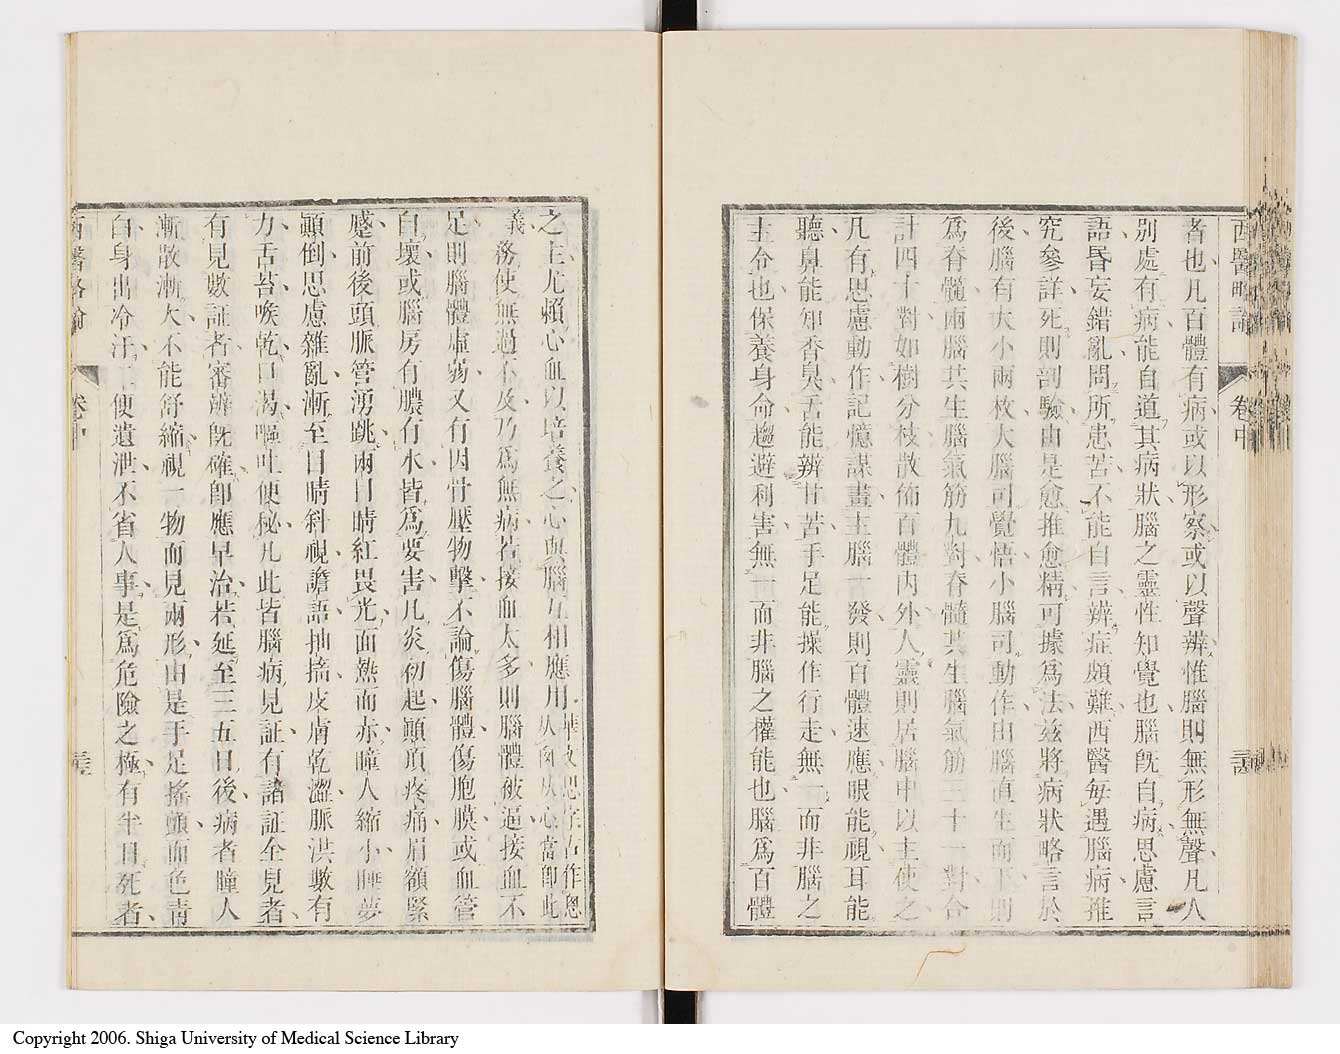 西醫略論
卷中
者也凡百體有病或以形察或以聲辨惟腦則無形無聲凡人
別處有病能自道其病狀腦之靈性知覺也腦旣自病思慮言
語昏妄錯亂問所患苦不能自言辨症頗難西醫每遇腦病推
究參詳死則剖驗由是愈推愈精可據爲法茲將病狀略言於
後腦有大小兩枚大腦司覺悟小腦司動作由腦直生而下則
爲脊髓兩腦其生腦氣筋九對脊髓其生腦氣筋三十一對合
計四十對如樹分枝散佈百體內外人靈則居腦中以主使之
凡有思慮動作記憶謀畫主腦一發則百體速應眼能視耳能
聽鼻能知香臭舌能辨甘苦手足能操作行走無一而非腦之
主令也保養身命趨避利害無一而非腦之權能也腦爲百體
之主尤賴心血以培養之心與腦互相應用
思字古作恖
从囟从心當卽此
義
務使無過不及乃爲無病若接血太多則腦體被逼接血不
足則腦體虛弱又有因骨壓物擊不論傷腦體傷胞膜或血管
自壞或腦房有膿有水皆爲要害凡炎初起顚頂疼痛眉額緊
蹙前後頭脈管湧跳兩目睛紅畏光面熱而赤瞳人縮小睡夢
顚倒思慮雜亂漸至目睛斜視譫語抽搐皮膚乾澀脈洪數有
力舌苔喉乾口渴嘔吐便秘凡此皆腦病見証有諸証全見者
有見數証者審辨旣確卽應早治若延至三五日後病者瞳人
漸散漸大不能舒縮視一物而見兩形由是手足搖顫面色靑
白身出冷汗二便遺泄不省人事是爲危險之極有半日死者
西醫略論
卷中
Copyright 2006. Shiga University of Medical Science Library